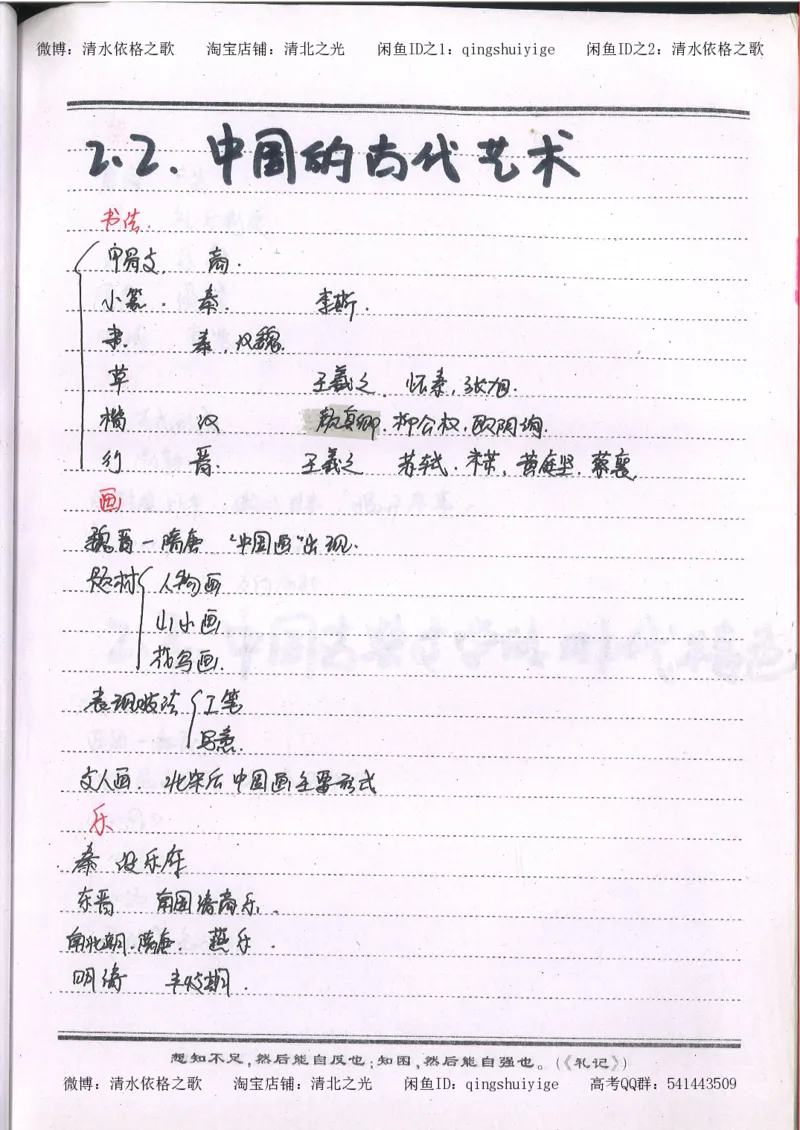 微博：清水依格之歌 淘宝店铺：清北之光 闲鱼ID之1：qingshuiyige 闲鱼ID之2：清水依格之歌
2.2. 中国的古代艺术
书法.
甲骨文 商.
小篆. 秦. 李斯.
隶. 秦,汉魏.
草 王羲之. 怀素,张旭.
楷 汉 颜真卿.柳公权.欧阳询.
行 晋. 王羲之 苏轼.米芾,黄庭坚.蔡襄
画
魏晋—隋唐 "中国画"出现.
题材 人物画
山水画
花鸟画.
表现技法 工笔
写意.
文人画. 北宋后中国画主要形式
乐
秦 设乐府
东晋 南国清商乐.
南北朝.隋唐. 燕乐.
明清 丰收期.
想知不足,然后能自反也;知困,然后能自强也。(《礼记》)
微博：清水依格之歌 淘宝店铺：清北之光 闲鱼ID：qingshuiyige 高考QQ群：541443509